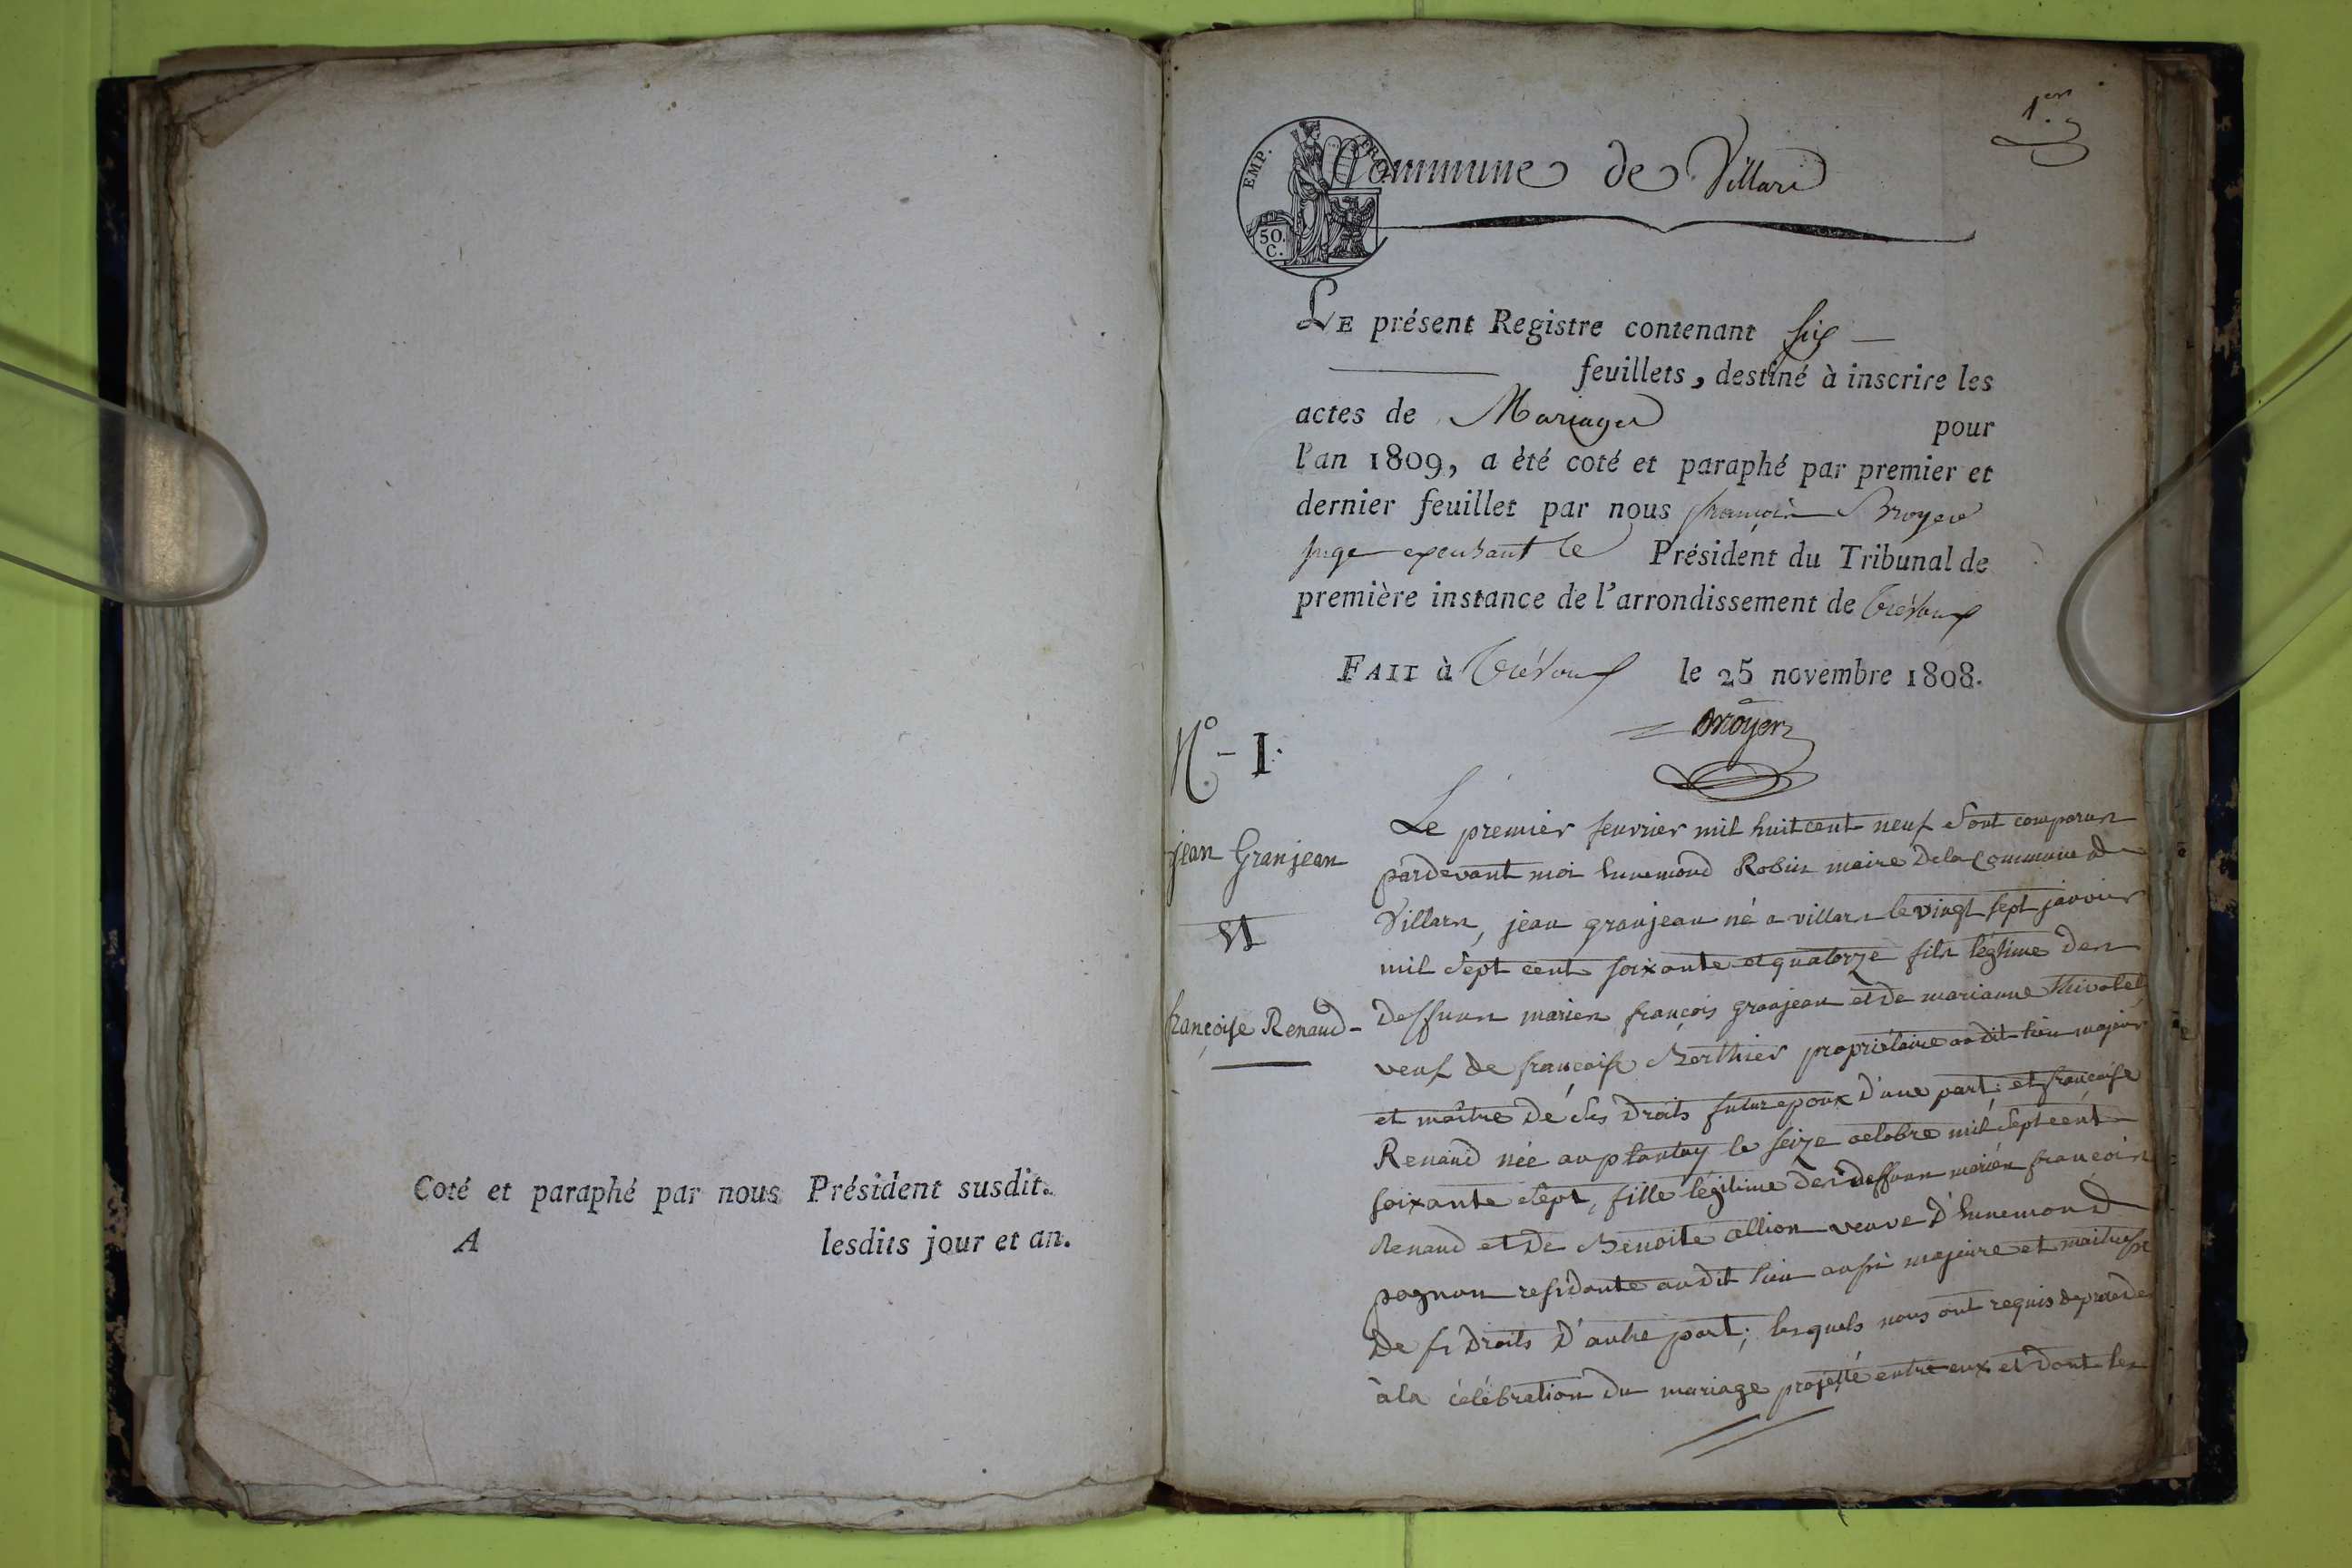 Coté et paraphé par nous Président susdit.
A lesdits jour et an.
1er
EMP. FRA
50.
C.
Commune de Villars
LE présent Registre contenant six
feuillets, destiné à inscrire les
actes de Mariages pour
l'an 1809, a été coté et paraphé par premier et
dernier feuillet par nous françois Broyer
juge exerçant le Président du Tribunal de
première instance de l'arrondissement de trévoux
FAIT à trévoux le 25 novembre 1808.
Broyer
N.º - I.
jean Granjean
Et
françoise Renaud -
Le premier fevrier mil huit cent neuf sont comparus
pardevant moi Ennemond Robin maire de la Commune de
Villars, jean granjean né a villars le vingt sept janvier
mil sept cent soixante et quatorze fils légitime des
deffuns mariés françois granjean et de marianne thivolet
veuf de françoise Berthier propriétaire au dit lieu majeur
et maître de ses droits futur epoux d'une part; et françoise
Renaud née au plantay le seize octobre mil sept cent
soixante sept, fille légitime des deffuns mariés françois
Renaud et de Benoite allion veuve d'Ennemond
pagnon residante au dit lieu aussi majeure et maitresse
de ss droits d'autre part; lesquels nous ont requis de procéder
à la célébration du mariage projetté entre eux et dont les